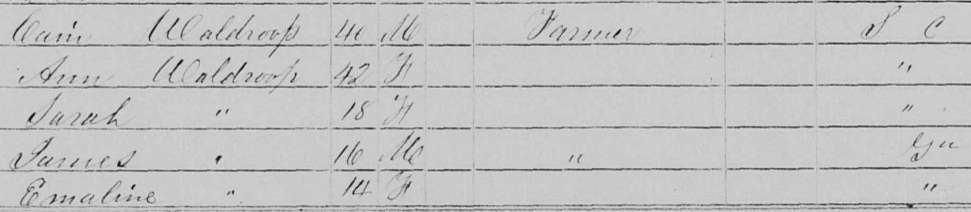 Cain Waldroop 40 M Farmer S C
Ann Waldroop 42 F "
Sarah " 18 F "
James " 16 M " Ga
Emaline " 14 F "